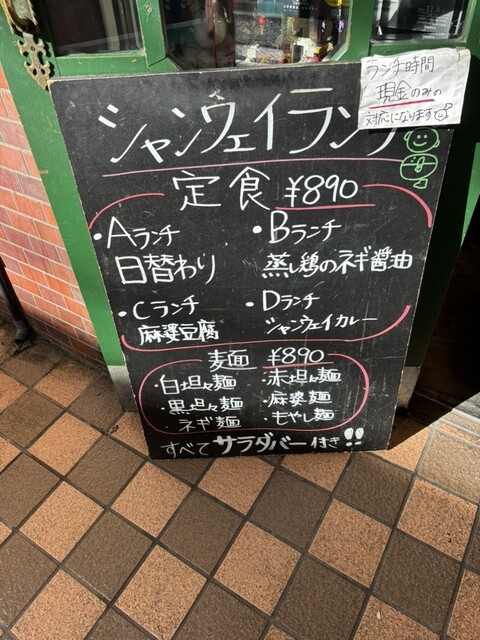 ランチ時間
現金のみの
対応になります
シャンウェイランチ
定食 ¥890
・Aランチ
日替わり
・Bランチ
蒸し鶏のネギ醤油
・Cランチ
麻婆豆腐
・Dランチ
シャンウェイカレー
麺面 ¥890
・白坦々麺
・赤坦々麺
・黒坦々麺
・麻婆麺
・ネギ麺
・もやし麺
すべてサラダバー付き!!